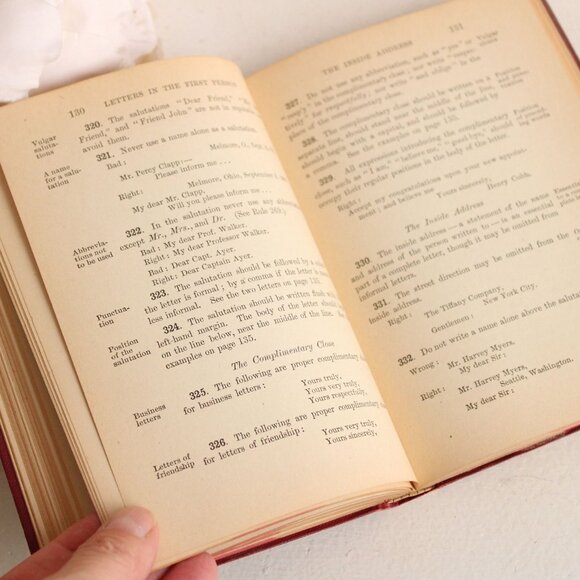 130 LETTERS IN THE FIRST PERSON
Vulgar salutations
320. The salutations "Dear Friend,"
Friend," and "Friend John" are not in
avoid them.
A name for a salutation
321. Never use a name alone as a salutation.
Bad: Melmore, O., Sept.
Mr. Percy Clapp:—
Please inform me . . .
Right: Melmore, Ohio, September
My dear Mr. Clapp,
Will you please inform me . . .
Abbreviations not to be used
322. In the salutation never use any abbreviation
except Mr., Mrs., and Dr. (See Rule 269.)
Bad: My dear Prof. Walker.
Right: My dear Professor Walker.
Bad: Dear Capt. Ayer.
Right: Dear Captain Ayer.
Punctuation
323. The salutation should be followed by a
the letter is formal; by a comma if the letter is
less informal. See the two letters on page 135.
Position of the salutation
324. The salutation should be written flush with
left-hand margin. The body of the letter should
on the line below, near the middle of the line.
examples on page 135.
The Complimentary Close
Business letters
325. The following are proper complimentary
for business letters: Yours truly,
Yours very truly,
Yours respectfully,
Letters of friendship
326. The following are proper complimentary
for letters of friendship: Yours very truly,
Yours sincerely,
THE INSIDE ADDRESS 131
327. Do not use any abbreviation, such as "yrs" or
in the complimentary close; nor write
for "respectfully;" nor write "and oblige" in the
place of the complimentary close.
Vulgar
328. The complimentary close should be written on a
separate line, should start near the middle of the line,
should begin with a capital, and should be followed by
a comma. See the examples on page 135.
Position and punctuation
329. All expressions introducing the complimentary
close, such as "I am," "believe me," "good hope," should
occupy their regular positions in the body of the letter.
Right:
Accept my congratulations upon your new appointment;
and believe me Yours sincerely,
Henry Cobb.
The Inside Address
330. The inside address — a statement of the name
and address of the person written to — is an essential
part of a complete letter, though it may be omitted from
informal letters.
331. The street direction may be omitted from the
inside address.
Right: The Tiffany Company,
New York City.
Gentlemen:
332. Do not write a name alone above the salutation.
Wrong: Mr. Harvey Myers,
My dear Sir:
Right: Mr. Harvey Myers,
Seattle, Washington,
My dear Sir: